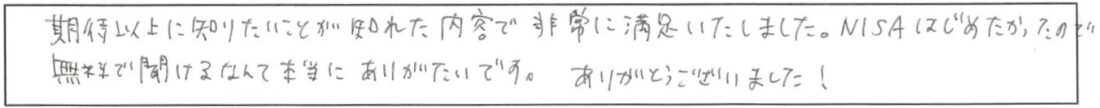 期待以上に知りたいことが知れた内容で非常に満足いたしました。NISAはじめたかったので
無料で聞けるなんて本当にありがたいです。 ありがとうございました!